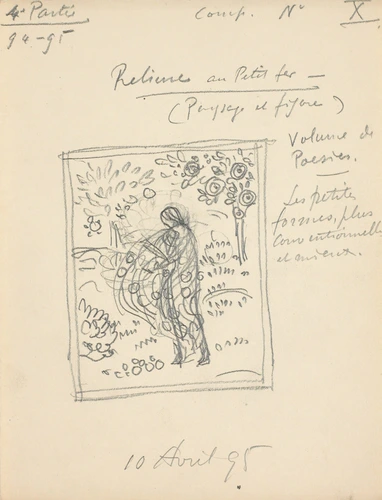 4e Partie
94-95
Comp. No X
Relieure au Petit fer —
(Paysage et figure)
Volume de
Poesies.
Les petites
formes, plus
conventionnelles
et mieux.
10 Avril 95